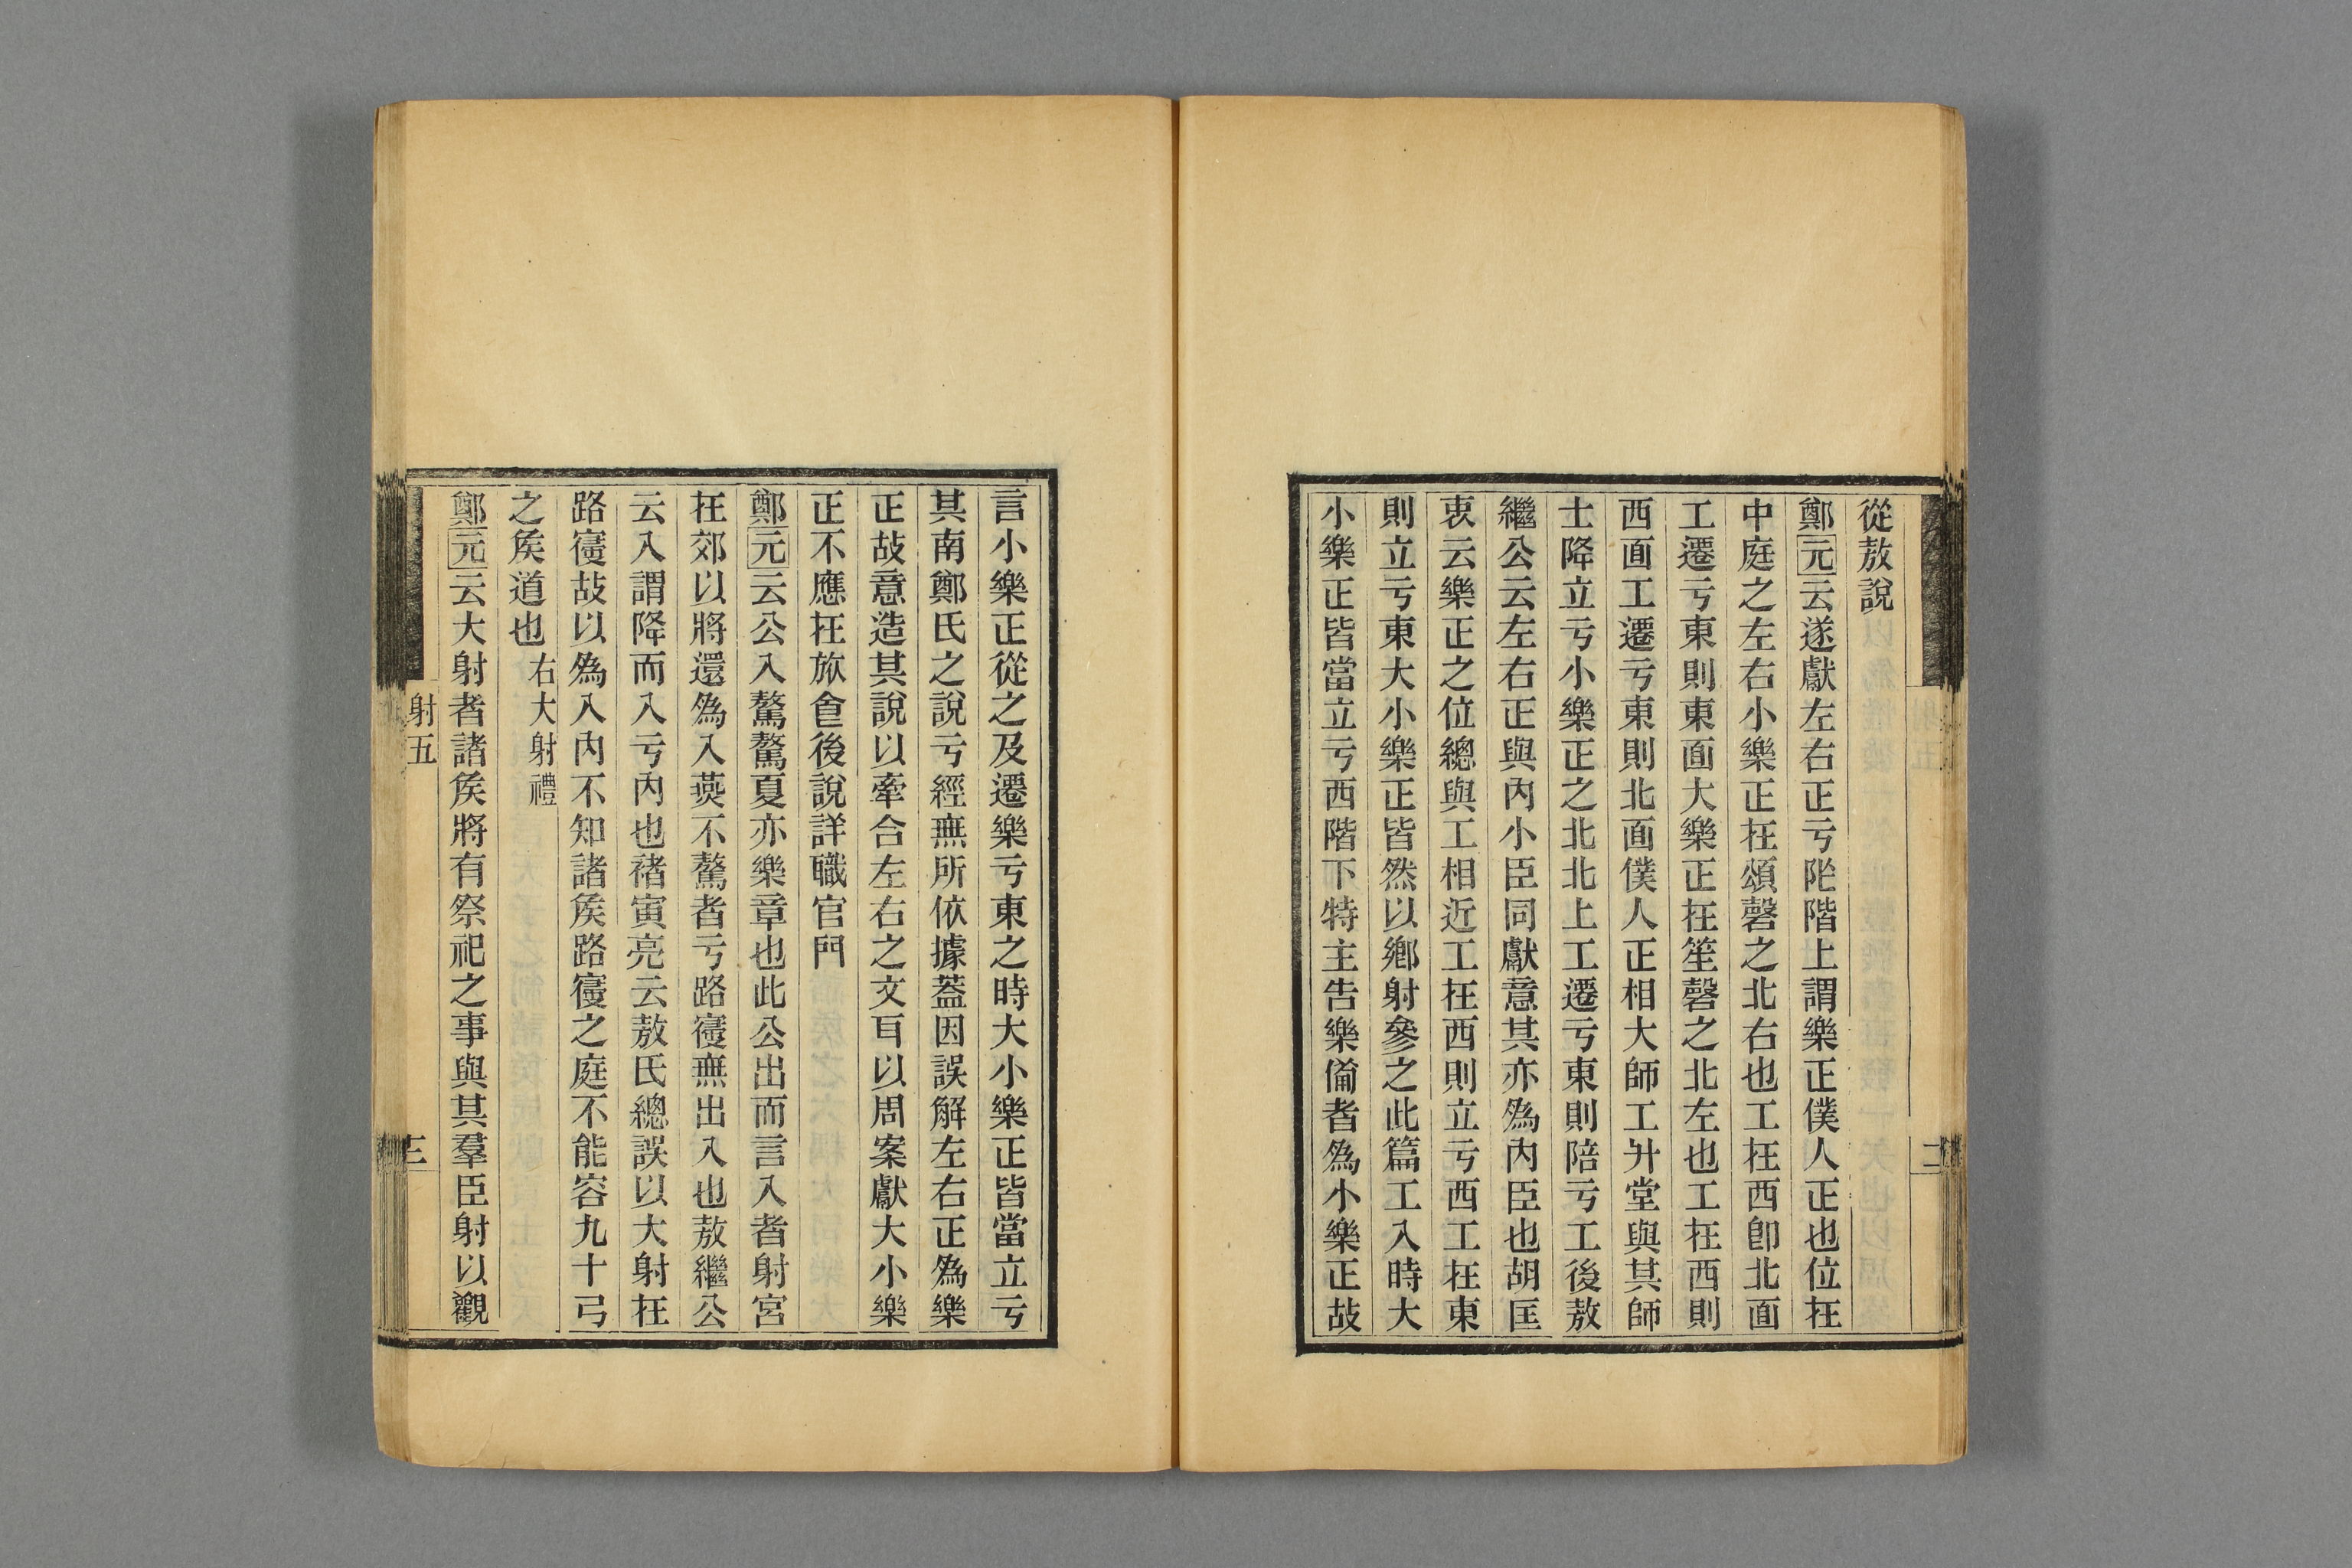 從敖說
鄭元云遂獻左右正亏阼階上謂樂正僕人正也位在
中庭之左右小樂正在頌磬之北右也工在西卽北面
工遷亏東則東面大樂正在笙磬之北左也工在西則
西面工遷亏東則北面僕人正相大師工升堂與其師
士降立亏小樂正之北北上工遷亏東則陪亏工後敖
繼公云左右正與內小臣同獻意其亦爲內臣也胡匡
衷云樂正之位總與工相近工在西則立亏西工在東
則立亏東大小樂正皆然以鄉射參之此篇工入時大
小樂正皆當立亏西階下特主告樂僃者爲小樂正故
言小樂正從之及遷樂亏東之時大小樂正皆當立亏
其南鄭氏之說亏經無所依據蓋因誤解左右正爲樂
正故意造其說以牽合左右之文耳以周案獻大小樂
正不應在旅食後說詳職官門
鄭元云公入驁驁夏亦樂章也此公出而言入者射宮
在郊以將還爲入燕不驁者亏路寑無出入也敖繼公
云入謂降而入亏內也褚寅亮云敖氏總誤以大射在
路寑故以爲入內不知諸矦路寑之庭不能容九十弓
之矦道也 右大射禮
鄭元云大射者諸矦將有祭祀之事與其羣臣射以觀
射五
三
二